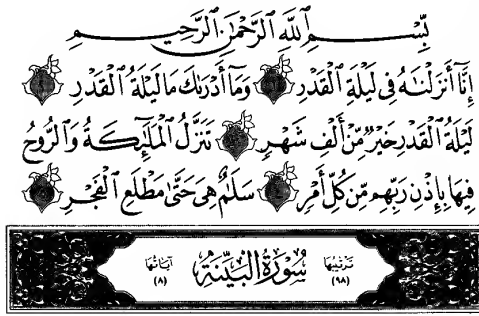 بِّسْمِ ٱللَّهِ ٱلرَّحْمَٰنِ ٱلرَّحِيمِ
إِنَّآ أَنزَلْنَٰهُ فِى لَيْلَةِ ٱلْقَدْرِ وَمَآ أَدْرَىٰكَ مَا لَيْلَةُ ٱلْقَدْرِ
لَيْلَةُ ٱلْقَدْرِ خَيْرٌ مِّنْ أَلْفِ شَهْرٍ تَنَزَّلُ ٱلْمَلَٰٓئِكَةُ وَٱلرُّوحُ
فِيهَا بِإِذْنِ رَبِّهِم مِّن كُلِّ أَمْرٍ سَلَٰمٌ هِىَ حَتَّىٰ مَطْلَعِ ٱلْفَجْرِ
ترتيبها سُورَةُ ٱلْبَيِّنَةِ آياتها
(٩٨) (٨)